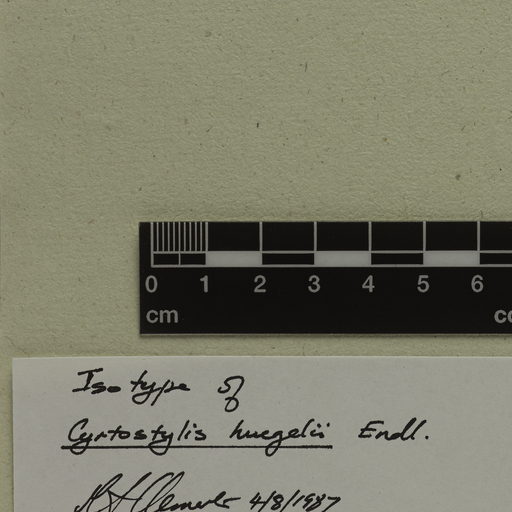 0 1 2 3 4 5 6
cm
Isotype of
Cyrtostylis huegelii Endl.
4/8/1987